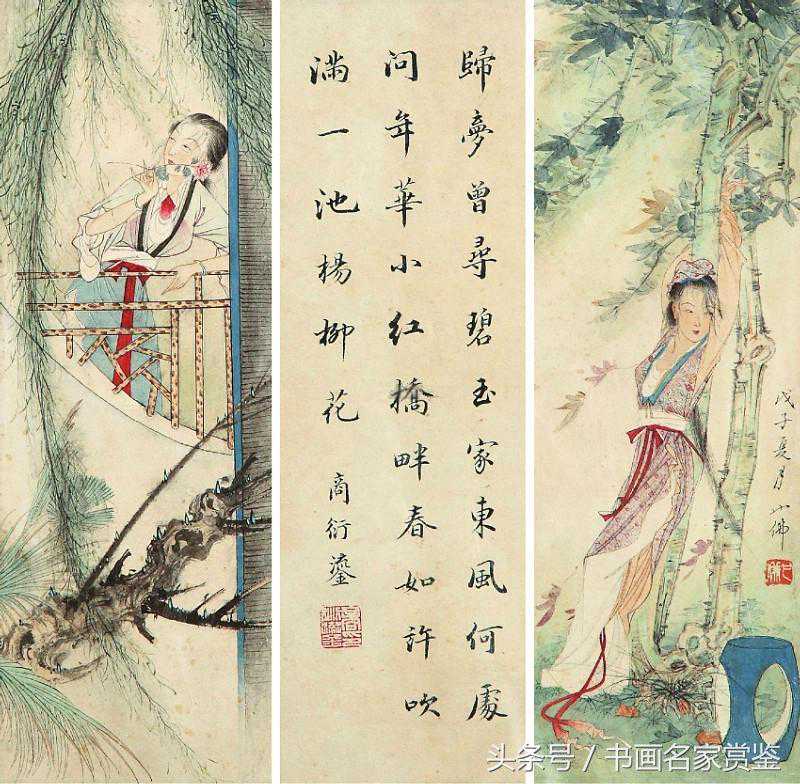 戊子夏月小佛
歸夢曾尋碧玉家東風何處
問年華小紅橋畔春如許吹
滿一池楊柳花
商衍鎏
头条号 / 书画名家赏鉴